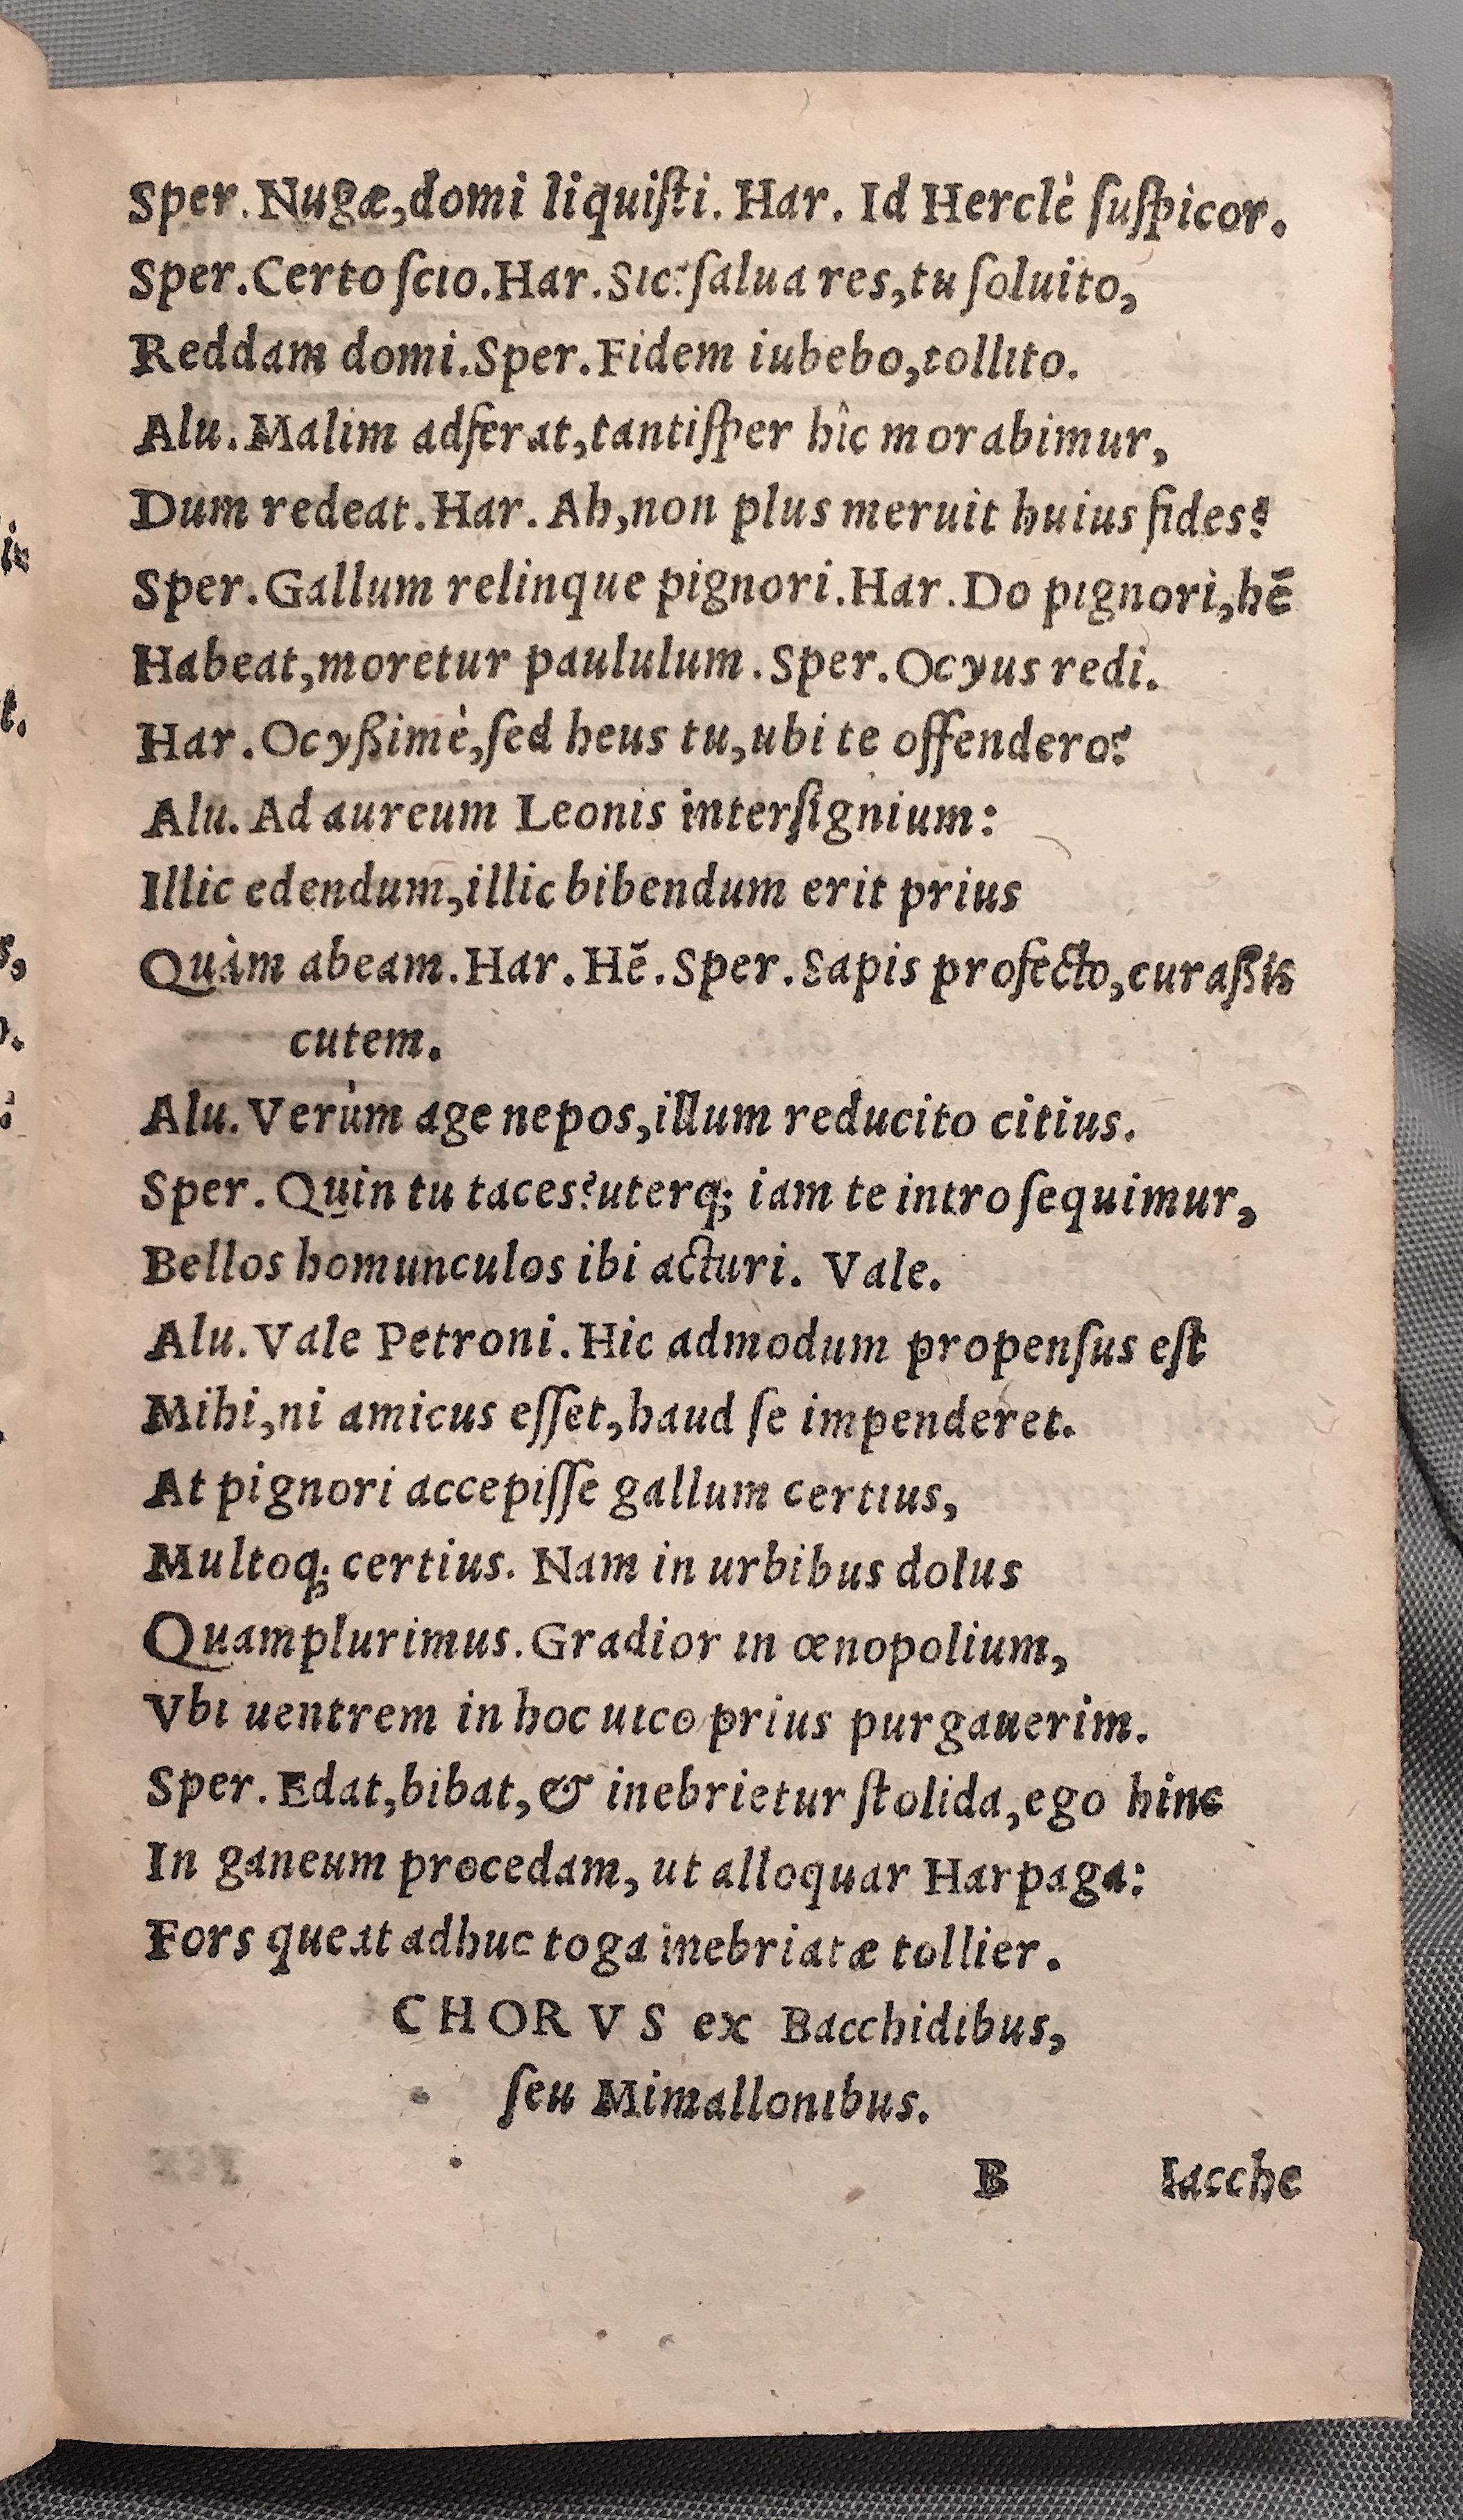 Sper. Nugæ, domi liquiſti. Har. Id Herclè ſuſpicor.
Sper. Certo ſcio. Har. Sic? ſalua res, tu ſoluito,
Reddam domi. Sper. Fidem iubebo, tollito.
Alu. Malim adferat, tantiſper hîc morabimur,
Dum redeat. Har. Ah, non plus meruit huius fides?
Sper. Gallum relinque pignori. Har. Do pignori, hē
Habeat, moretur paululum. Sper. Ocyus redi.
Har. Ocyßimè, ſed heus tu, ubi te offendero?
Alu. Ad aureum Leonis interſignium:
Illic edendum, illic bibendum erit prius
Quàm abeam. Har. Hē. Sper. Sapis profecto, curaßis
cutem.
Alu. Verùm age nepos, illum reducito citius.
Sper. Quin tu taces? uterq; iam te intro ſequimur,
Bellos homunculos ibi acturi. Vale.
Alu. Vale Petroni. Hic admodum propenſus eſt
Mihi, ni amicus eſſet, haud ſe impenderet.
At pignori accepiſſe gallum certius,
Multoq; certius. Nam in urbibus dolus
Quamplurimus. Gradior in œnopolium,
Vbi uentrem in hoc uico prius purgauerim.
Sper. Edat, bibat, & inebrietur ſtolida, ego hinc
In ganeum procedam, ut alloquar Harpaga:
Fors queat adhuc toga inebriatæ tollier.
CHORVS ex Bacchidibus,
ſeu Mimallonibus.
B Iacche